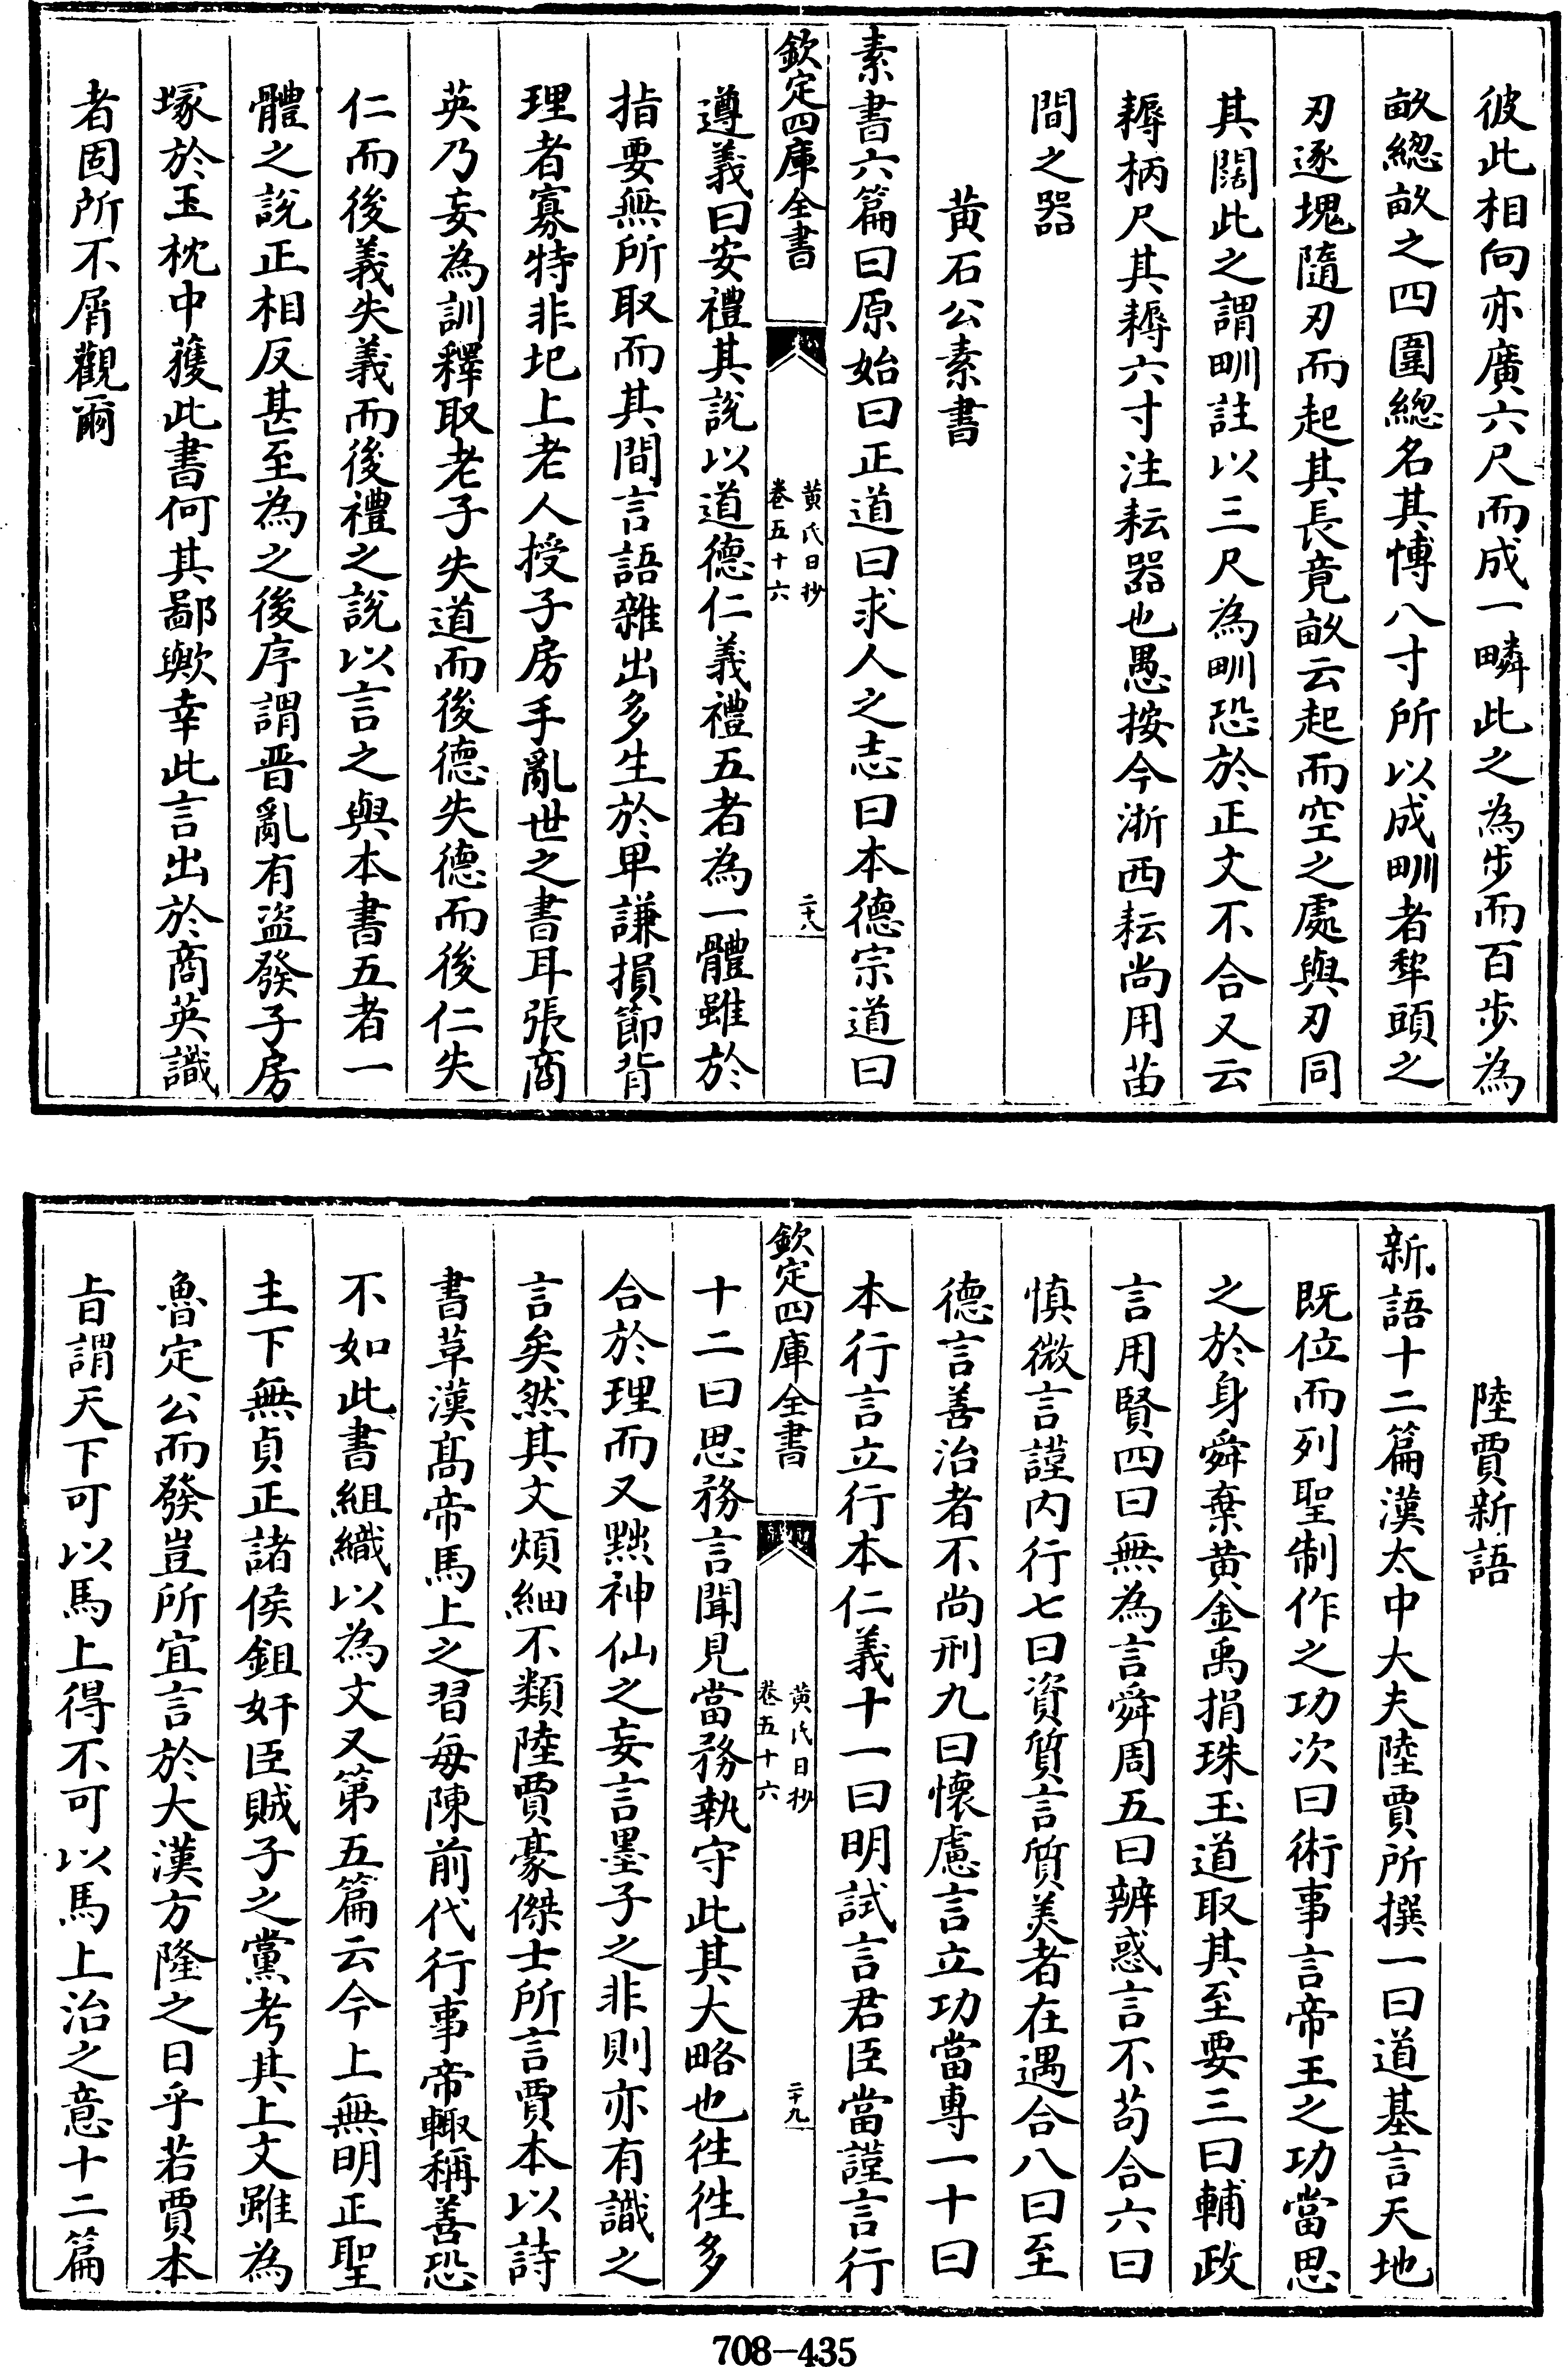 彼此相向亦廣六尺而成一疄此之為步而百步為
畝緫畝之四圍緫名其愽八寸所以成甽者犂頭之
刃逐塊隨刃而起其長竟畝云起而空之處與刃同
其闊此之謂甽註以三尺為甽恐於正文不合又云
耨柄尺其耨六寸注耘器也愚按今浙西耘尚用苖
間之器
黄石公素書
素書六篇曰原始曰正道曰求人之志曰本德宗道曰
欽定四庫全書
黄氏日抄
卷五十六
二十八
遵義曰安禮其說以道德仁義禮五者為一體雖於
指要無所取而其間言語雜出多生於卑謙損節背
理者寡特非圯上老人授子房手亂世之書耳張商
英乃妄為訓釋取老子失道而後德失德而後仁失
仁而後義失義而後禮之說以言之與本書五者一
體之說正相反甚至為之後序謂晋亂有盜發子房
塚於玉枕中蔆此書何其鄙歟幸此言出於商英識
者固所不屑觀爾
陸賈新語
新語十二篇漢太中大夫陸賈所撰一曰道基言天地
既位而列聖制作之功次曰術事言帝王之功當思
之於身舜棄黄金禹捐珠玉道取其至要三曰輔政
言用賢四曰無為言舜周五曰辨惑言不苟合六曰
慎微言謹内行七曰資質言質美者在遇合八曰至
德言善治者不尚刑九曰懷慮言立功當專一十曰
本行言立行本仁義十一曰明試言君臣當謹言行
欽定四庫全書
黄氏日抄
卷五十六
二十九
十二曰思務言聞見當務執守此其大略也徃徃多
合於理而又黜神仙之妄言墨子之非則亦有識之
言矣然其文煩細不類陸賈豪傑士所言賈本以詩
書草漢髙帝馬上之習每陳前代行事帝輙稱善恐
不如此書組織以為文又第五篇云今上無明正聖
主下無貞正諸侯鉏奸臣賊子之黨考其上文雖為
魯定公而發豈所宜言於大漢方隆之日乎若賈本
㫖謂天下可以馬上得不可以馬上治之意十二篇
708-435